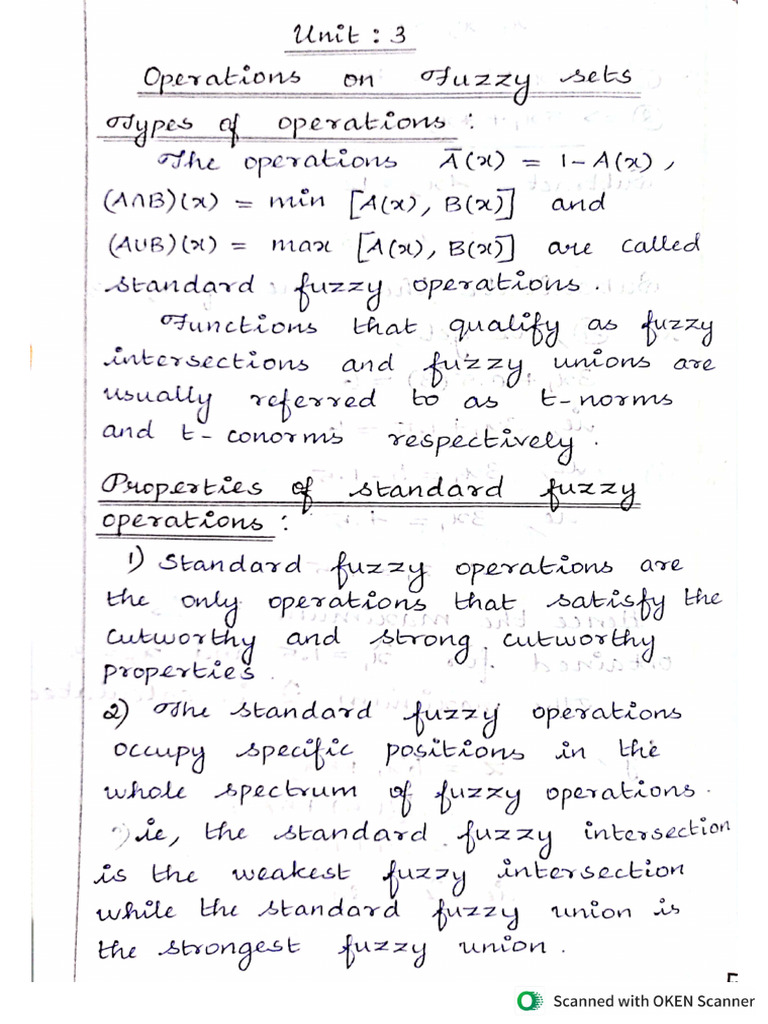 Unit : 3
Operations on Fuzzy sets
Types of operations :
The operations Ā(x) = 1 - A(x) ,
(A∩B)(x) = min [A(x), B(x)] and
(A∪B)(x) = max [A(x), B(x)] are called
standard fuzzy operations .
Functions that qualify as fuzzy
intersections and fuzzy unions are
usually referred to as t-norms
and t- conorms respectively .
Properties of standard fuzzy
operations :
1) Standard fuzzy operations are
the only operations that satisfy the
cutworthy and strong cutworthy
properties .
2) The standard fuzzy operations
occupy specific positions in the
whole spectrum of fuzzy operations .
ie, the standard fuzzy intersection
is the weakest fuzzy intersection
while the standard fuzzy union is
the strongest fuzzy union .
Scanned with OKEN Scanner